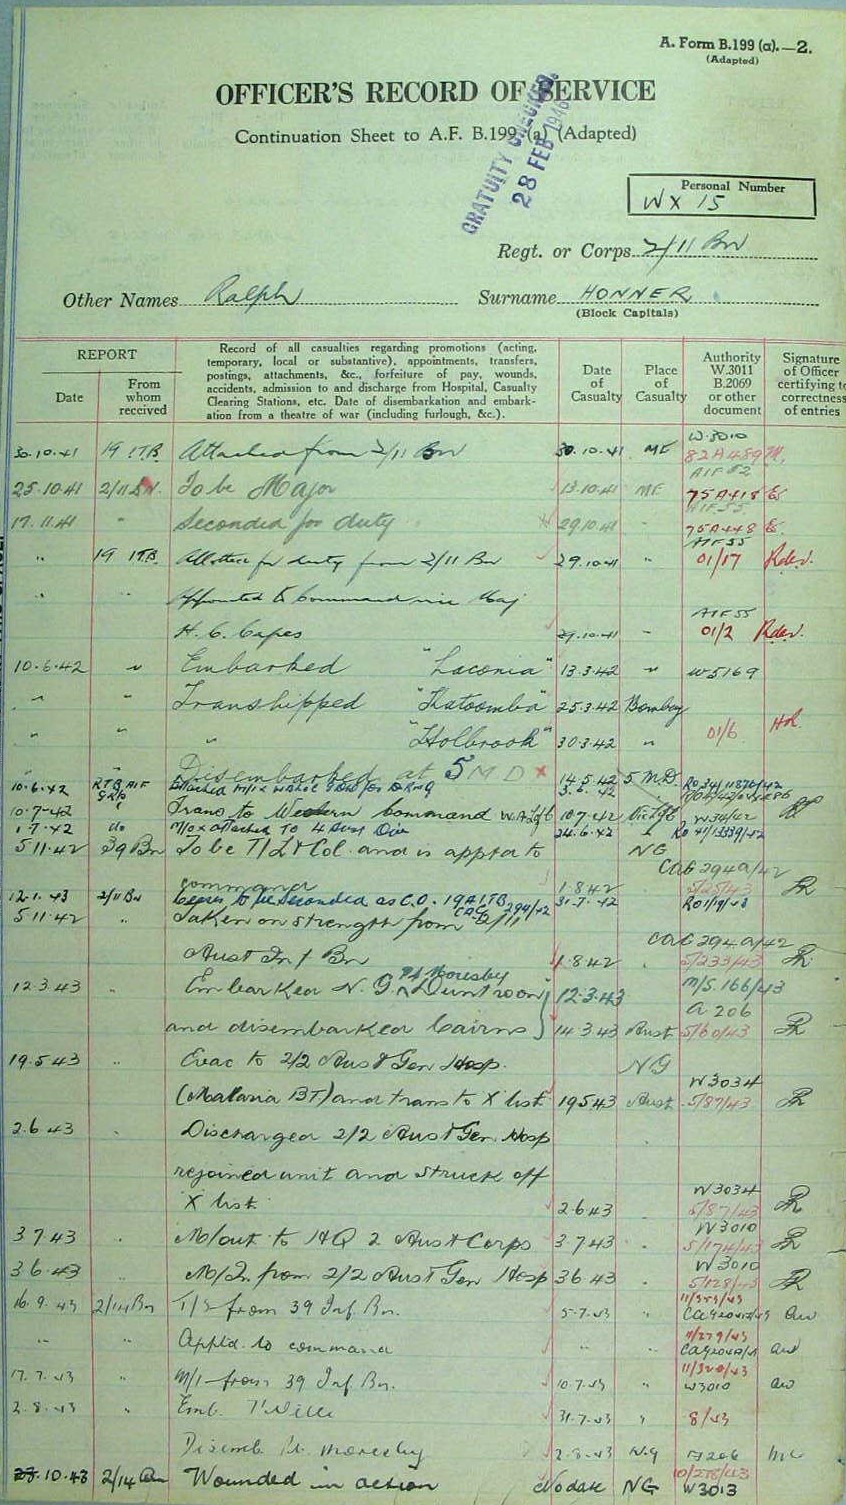 A. Form B.199 (a).—2.
(Adapted)
OFFICER'S RECORD OF SERVICE
Continuation Sheet to A.F. B.199 (a) (Adapted)
GRATUITY CHECKED.
28 FEB 1946
Personal Number
WX 15
Regt. or Corps 2/11 Bn
Other Names Ralph Surname HONNER
(Block Capitals)
REPORT
Date
From whom received
Record of all casualties regarding promotions (acting,
temporary, local or substantive), appointments, transfers,
postings, attachments, &c., forfeiture of pay, wounds,
accidents, admission to and discharge from Hospital, Casualty
Clearing Stations, etc. Date of disembarkation and embark-
ation from a theatre of war (including furlough, &c.).
Date of Casualty
Place of Casualty
Authority W.3011 B.2069 or other document
Signature of Officer certifying to correctness of entries
W.3010
30.10.41 19 ITB Attached from 2/11 Bn 30.10.41 ME 82A489
AIF 52
25.10.41 2/11 Bn To be Major 13.10.41 ME 75A418
AIF 55
17.11.41 " Seconded for duty 29.10.41 " 75A448
AIF 55
" 19 ITB Allotted for duty from 2/11 Bn 29.10.41 " 01/17
" " Appointed to Command vice Maj
AIF 55
H. C. Capes 29.10.41 " 01/2
10.6.42 " Embarked "Laconia" 13.3.42 " W5169
" " Transhipped "Katoomba" 25.3.42 Bombay
" " " "Holbrook" 30.3.42 " 01/6
" " Disembarked at 5 M D 14.5.42 5 M.D
10.6.42 RTB AIF
10.7.42 " Trans to Western Command 10.7.42 W34/42
1.7.42 do M/o x attached to 4 Aust Div 24.6.42
5.11.42 39 Bn To be T/Lt Col. and is apptd to NG
CAG 294a/42
command 1.8.42 5/25/43
12.1.43 2/11 Bn Ceases to be seconded as C.O. 19 A ITB 31.7.42
CAG 294/42
5.11.42 " Taken on strength from 2/11
CAG 294a/42
Aust Inf Bn 1.8.42 5/233/43
Pt Moresby
12.3.43 " Embarked N.G. Duntroon 12.3.43 M/S.166/43
A 206
and disembarked Cairns 14.3.43 Aust 5/60/43
19.5.43 " Evac to 2/2 Aust Gen Hosp. NG
W3034
(Malaria BT) and trans to X list 19.5.43 Aust 5/87/43
2.6.43 " Discharged 2/2 Aust Gen Hosp
rejoined unit and struck off
W3034
X list 2.6.43 " 5/87/43
W3010
3.7.43 " M/out to HQ 2 Aust Corps 3.7.43 " 5/174/43
W3010
3.6.43 " M/I from 2/2 Aust Gen Hosp 3.6.43 " 5/128/43
11/353/43
16.9.43 2/14 Bn T/S from 39 Inf Bn. 5.7.43 "
11/279/43
" " Apptd. to command " "
11/320/43
17.7.43 " M/I from 39 Inf Bn. 10.7.43 " W3010
2.8.43 " Emb. T'Ville 31.7.43 " 8/43
Disemb. Pt. Moresby 2.8.43 N.G A206
10/278/43
23.10.43 2/14 Bn Wounded in action No date NG W3013